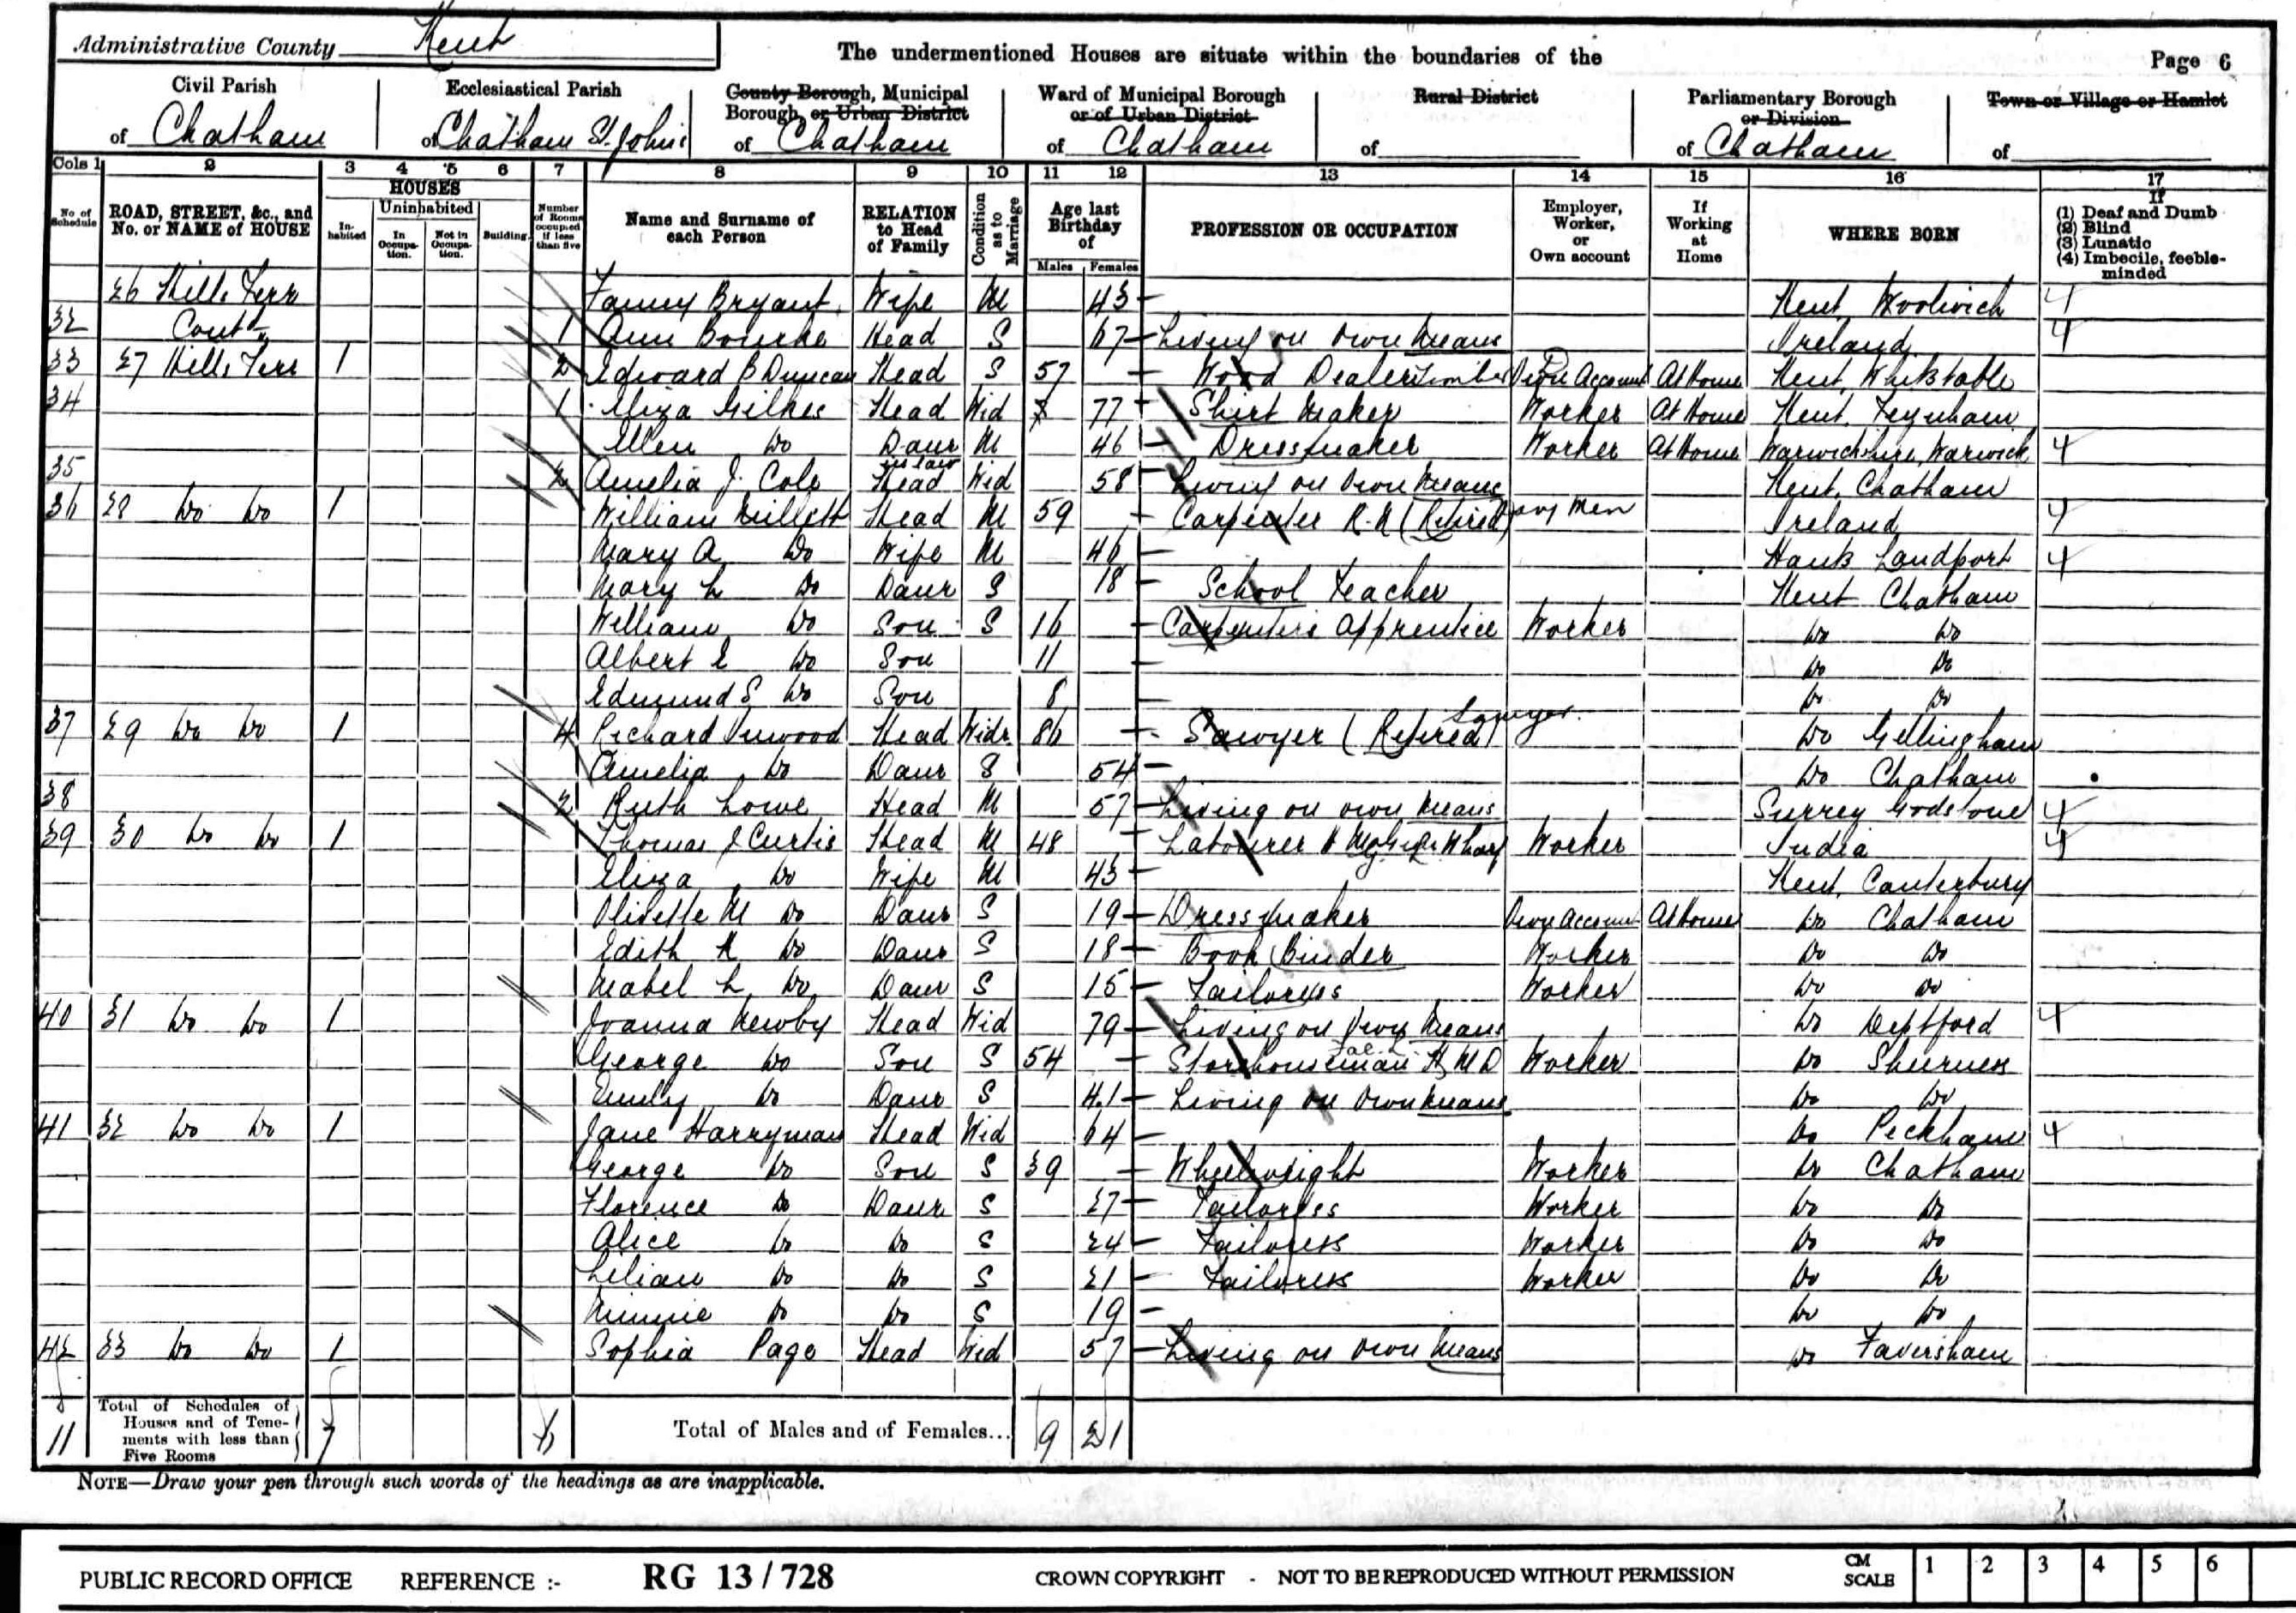 Administrative County Kent
The undermentioned Houses are situate within the boundaries of the
Page 6
Civil Parish of Chatham
Ecclesiastical Parish of Chatham St. Johns
County Borough, Municipal Borough, or Urban District of Chatham
Ward of Municipal Borough or of Urban District of Chatham
Rural District of
Parliamentary Borough or Division of Chatham
Town or Village or Hamlet of
Cols 1 2 3 4 5 6 7 8 9 10 11 12 13 14 15 16 17
No of Schedule
ROAD, STREET, &c., and No. or NAME of HOUSE
HOUSES
In-habited
Uninhabited
In Occupa-tion.
Not in Occupa-tion.
Building.
Number of Rooms occupied if less than five
Name and Surname of each Person
RELATION to Head of Family
Condition as to Marriage
Age last Birthday of
Males Females
PROFESSION OR OCCUPATION
Employer, Worker, or Own account
If Working at Home
WHERE BORN
If (1) Deaf and Dumb (2) Blind (3) Lunatic (4) Imbecile, feeble-minded
26 Hills Terr Fanny Bryant Wife M 43 — Kent, Woolwich 4
32 Contd 1 Ann Bourke Head S 67 Living on Own Means Ireland 4
33 27 Hills Terr 1 2 Edward B Duncan Head S 57 — Wood Dealer Timber Own Account At Home Kent, Whitstable
34 1 Eliza Gilkes Head Wid 77 Shirt Maker Worker At Home Kent, Teynham
Ellen Do Daur in law M 46 Dressmaker Worker At Home Warwickshire, Warwick 4
35 2 Amelia J. Cole Head Wid 58 Living on Own Means Kent, Chatham
36 28 Do Do 1 William Millett Head M 59 — Carpenter R.N (Retired) Ireland 4
Mary A Do Wife M 46 — Hants Landport 4
Mary L Do Daur S 18 — School Teacher Kent Chatham
William Do Son S 16 — Carpenters Apprentice Worker Do Do
Albert E Do Son 11 — Do Do
Edmund S Do Son 8 — Do Do
37 29 Do Do 1 4 Richard Inwood Head Widr 86 — Sawyer (Retired) Sawyer Do Gillingham
Amelia Do Daur S 54 — Do Chatham
38 2 Ruth Lowe Head M 57 — Living on own Means Surrey Godstone 4
39 30 Do Do 1 Thomas J Curtis Head M 48 — Labourer Wharf Worker India 4
Eliza Do Wife M 43 — Kent, Canterbury
Olivette M Do Daur S 19 — Dressmaker Own Account At Home Do Chatham
Edith A Do Daur S 18 — Book Binder Worker Do Do
Mabel L Do Daur S 15 — Tailoress Worker Do Do
40 31 Do Do 1 Joanna Newby Head Wid 79 — Living on Own Means Do Deptford 4
George Do Son S 54 — Storehouseman H M D Worker Do Sheerness
Emily Do Daur S 41 — Living on Own Means Do Do
41 32 Do Do 1 Jane Harryman Head Wid 64 — Do Peckham 4
George Do Son S 39 — Wheelwright Worker Do Chatham
Florence Do Daur S 27 — Tailoress Worker Do Do
Alice Do Do S 24 — Tailoress Worker Do Do
Lilian Do Do S 21 — Tailoress Worker Do Do
Minnie Do Do S 19 — Do Do
42 33 Do Do 1 Sophia Page Head Wid 57 — Living on Own Means Do Faversham
11 Total of Schedules of Houses and of Tene-ments with less than Five Rooms 7
Total of Males and of Females... 9 21
NOTE—Draw your pen through such words of the headings as are inapplicable.
PUBLIC RECORD OFFICE REFERENCE :- RG 13 / 728
CROWN COPYRIGHT - NOT TO BE REPRODUCED WITHOUT PERMISSION
CM SCALE 1 2 3 4 5 6